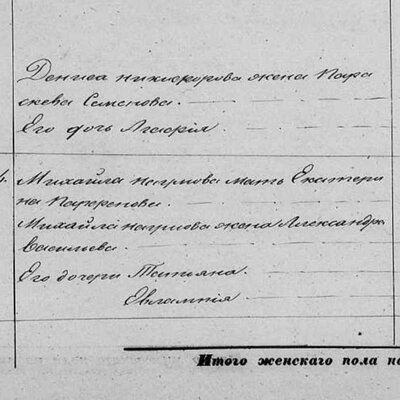 Дениса Никифорова жена Пара
скева Семенова.
Его дочь Глафира.
4.
Михайла Наумова мать Екатери
на Парфенова.
Михайла Наумова жена Александра
Васильева.
Его дочери Татьяна.
Евлампія.
Итого женскаго пола на